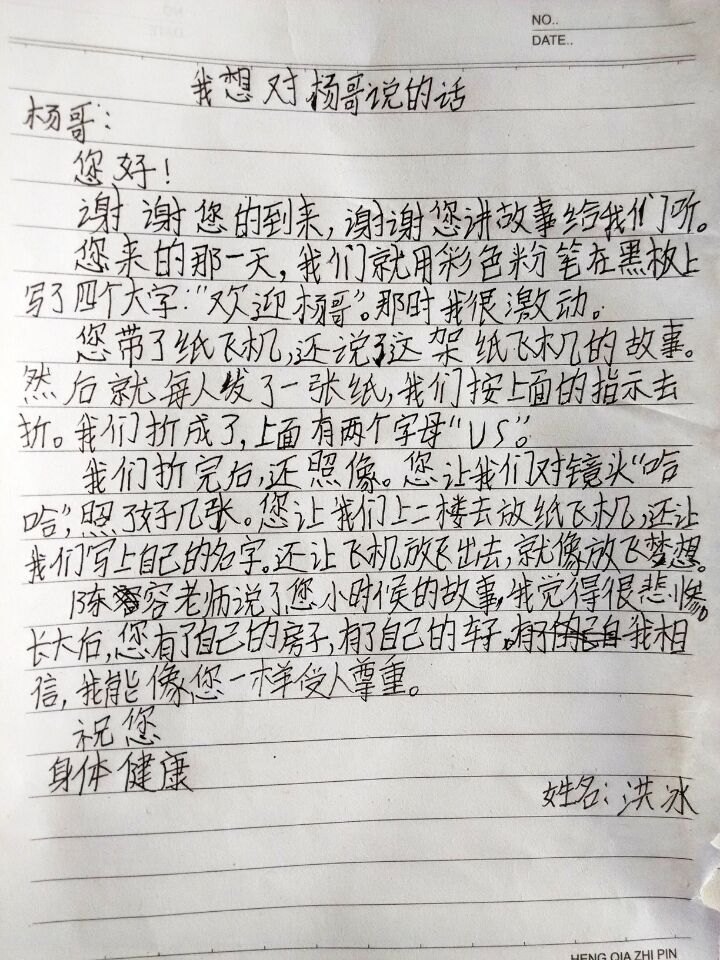 NO..
DATE..
我想对杨哥说的话
杨哥:
您好!
谢谢您的到来,谢谢您讲故事给我们听。
您来的那一天,我们就用彩色粉笔在黑板上
写了四个大字:“欢迎杨哥”。那时我很激动。
您带了纸飞机,还说了这架纸飞机的故事。
然后就每人发了一张纸,我们按上面的指示去
折。我们折成了,上面有两个字母“US”。
我们折完后,还照像。您让我们对镜头“哈
哈”,照了好几张。您让我们上二楼去放纸飞机,还让
我们写上自己的名字。还让飞机放飞出去,就像放飞梦想。
陈容老师说了您小时候的故事,我觉得很悲惨。
长大后,您有了自己的房子,有了自己的车子。我相
信,我能像您一样受人尊重。
祝您
身体健康
姓名:洪冰
HENG QIA ZHI PIN